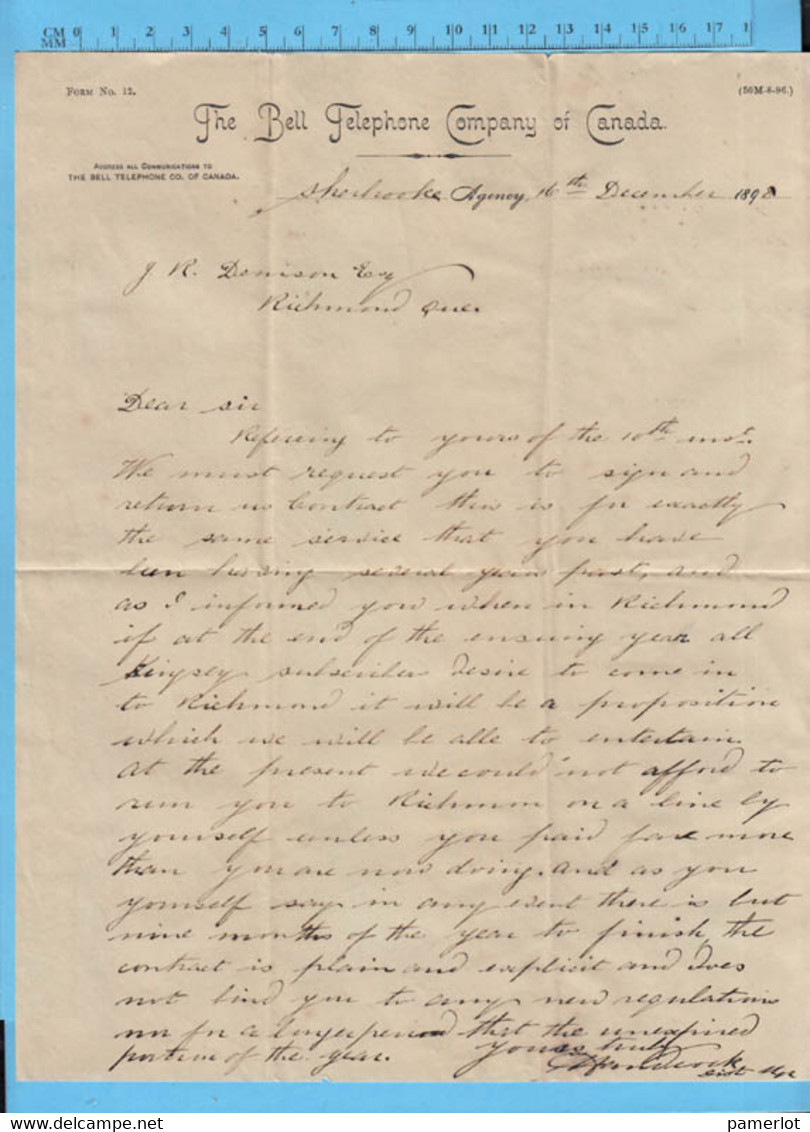 CM 0 1 2 3 4 5 6 7 8 9 10 11 12 13 14 15 16 17 1
MM
FORM No. 12. (50M-8-96.)
The Bell Telephone Company of Canada.
ADDRESS ALL COMMUNICATIONS TO
THE BELL TELEPHONE CO. OF CANADA.
Sherbrooke Agency, 16th December 1898
J R. Denison Esq
Richmond Que.
Dear sir
Refering to yours of the 10th inst.
We must request you to sign and
return us Contract this is for exactly
the same service that you have
been having several years past, and
as I informed you when in Richmond
if at the end of the ensuing year all
Kingsey subscribers desire to come in
to Richmond it will be a proposition
which we will be able to entertain.
At the present we could not afford to
run you to Richmon on a line by
yourself unless you paid far more
than you are now doing. And as you
yourself say in any event there is but
nine months of the year to finish, the
contract is plain and explicit and does
not bind you to any new regulations
nor for a longer period that the unexpired
portion of the year. Yours truly
pamerlot